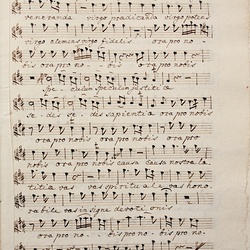 veneranda virgo prædicanda virgo potens
virgo clemens virgo fidelis ora pro no
bis ora pro no bis ora pro nobis
spe culum speculum justitiæ
sedes sedes sapientiæ ora pro nobis
ora pro nobis ora pro nobis ora pro
nobis ora pro nobis causa causa nostræ læ
titiæ vas vas spirituale vas hono
rabile vas insigne devotionis
ora pro no bis ora pro no bis pro no